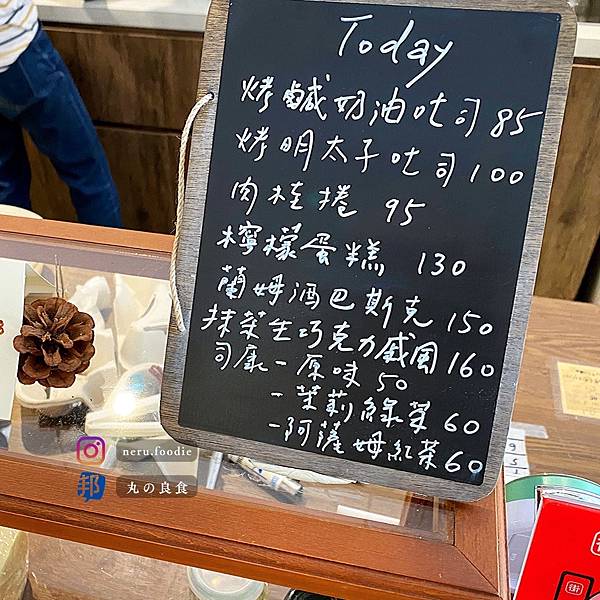 Today
烤鹹奶油吐司 85
烤明太子吐司 100
肉桂捲 95
檸檬蛋糕 130
蘭姆酒巴斯克 150
抹茶生巧克力戚風 160
司康-原味 50
-茉莉綠茶 60
-阿薩姆紅茶 60
neru.foodie
邦
丸の良食